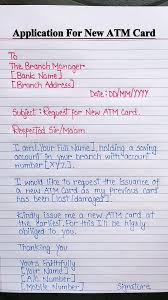 Application For New ATM Card
To
The Branch Manager
[Bank Name]
[Branch Address]
Date: DD/MM/YYYY
Subject: Request for New ATM Card.
Respected Sir/Madam
I am [Your Full Name], holding a saving
account in your branch with account
number [XYZ].
I would like to request the issuance
of a new ATM Card as my previous card
has been [lost/damaged].
Kindly issue me a new ATM card at
the earliest. For this I'll be highly
obliged to you.
Thanking you
Yours Faithfully
[Your Name]
[A/c Number]
[Mobile Number]
Signature